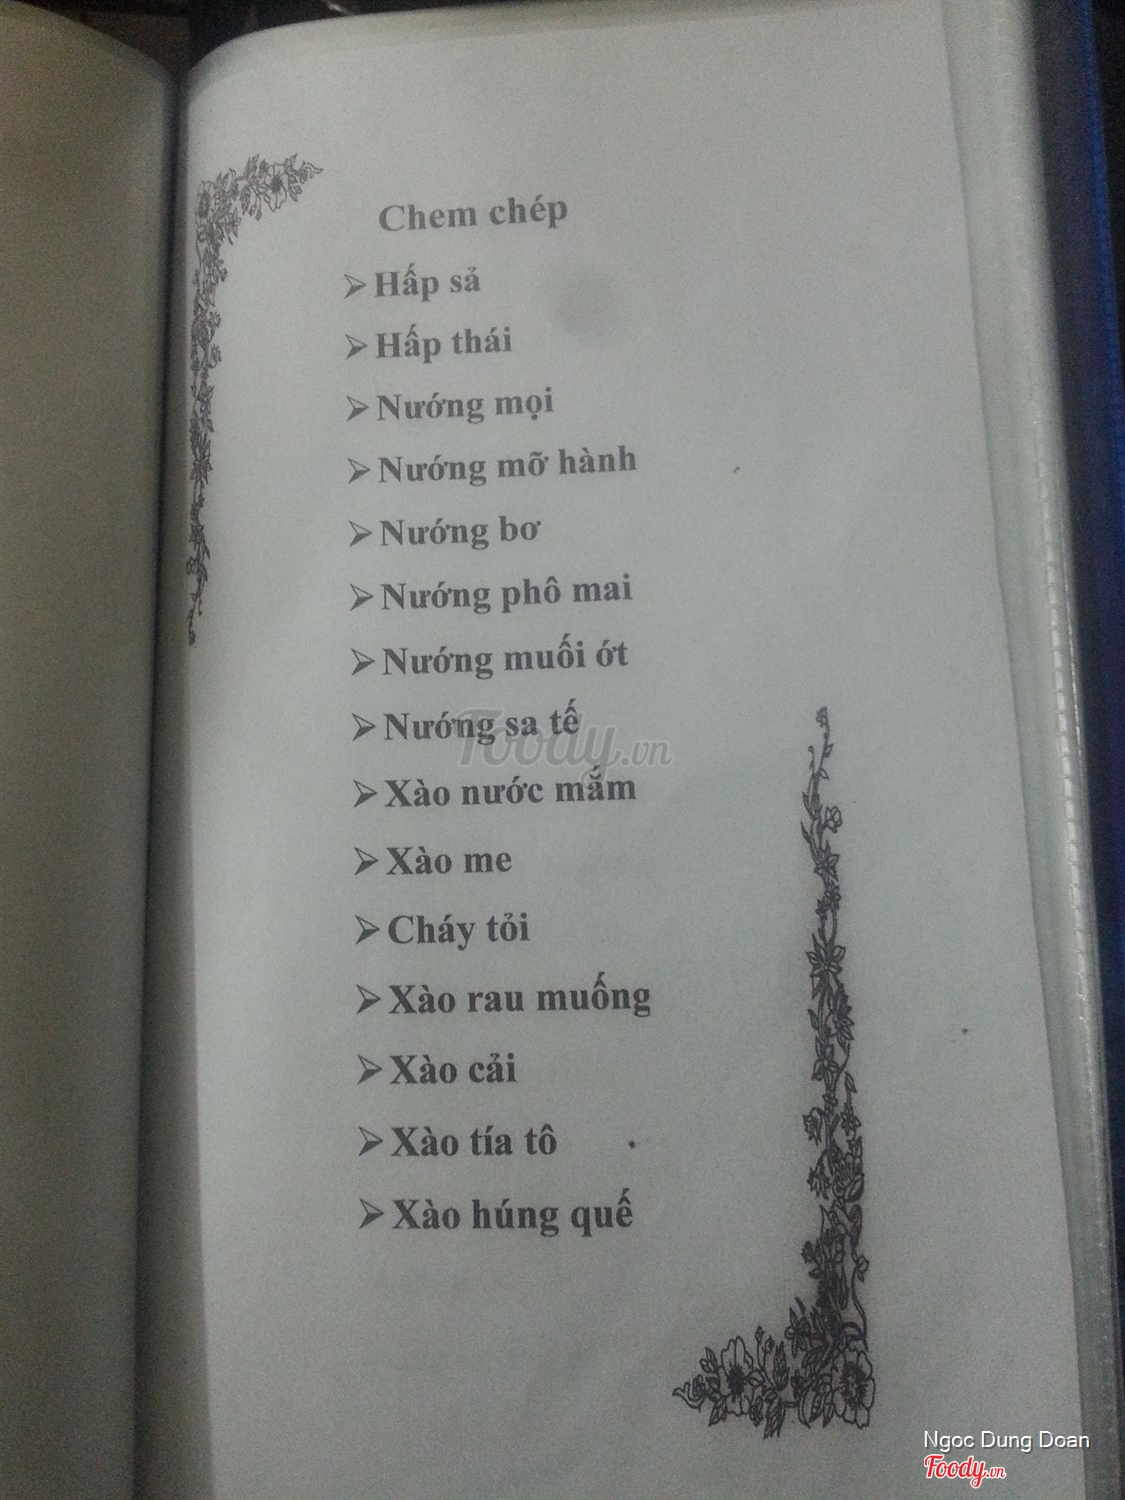 Chem chép
Hấp sả
Hấp thái
Nướng mọi
Nướng mỡ hành
Nướng bơ
Nướng phô mai
Nướng muối ớt
Nướng sa tế
Foody.vn
Xào nước mắm
Xào me
Cháy tỏi
Xào rau muống
Xào cải
Xào tía tô
Xào húng quế
Ngoc Dung Doan
Foody.vn